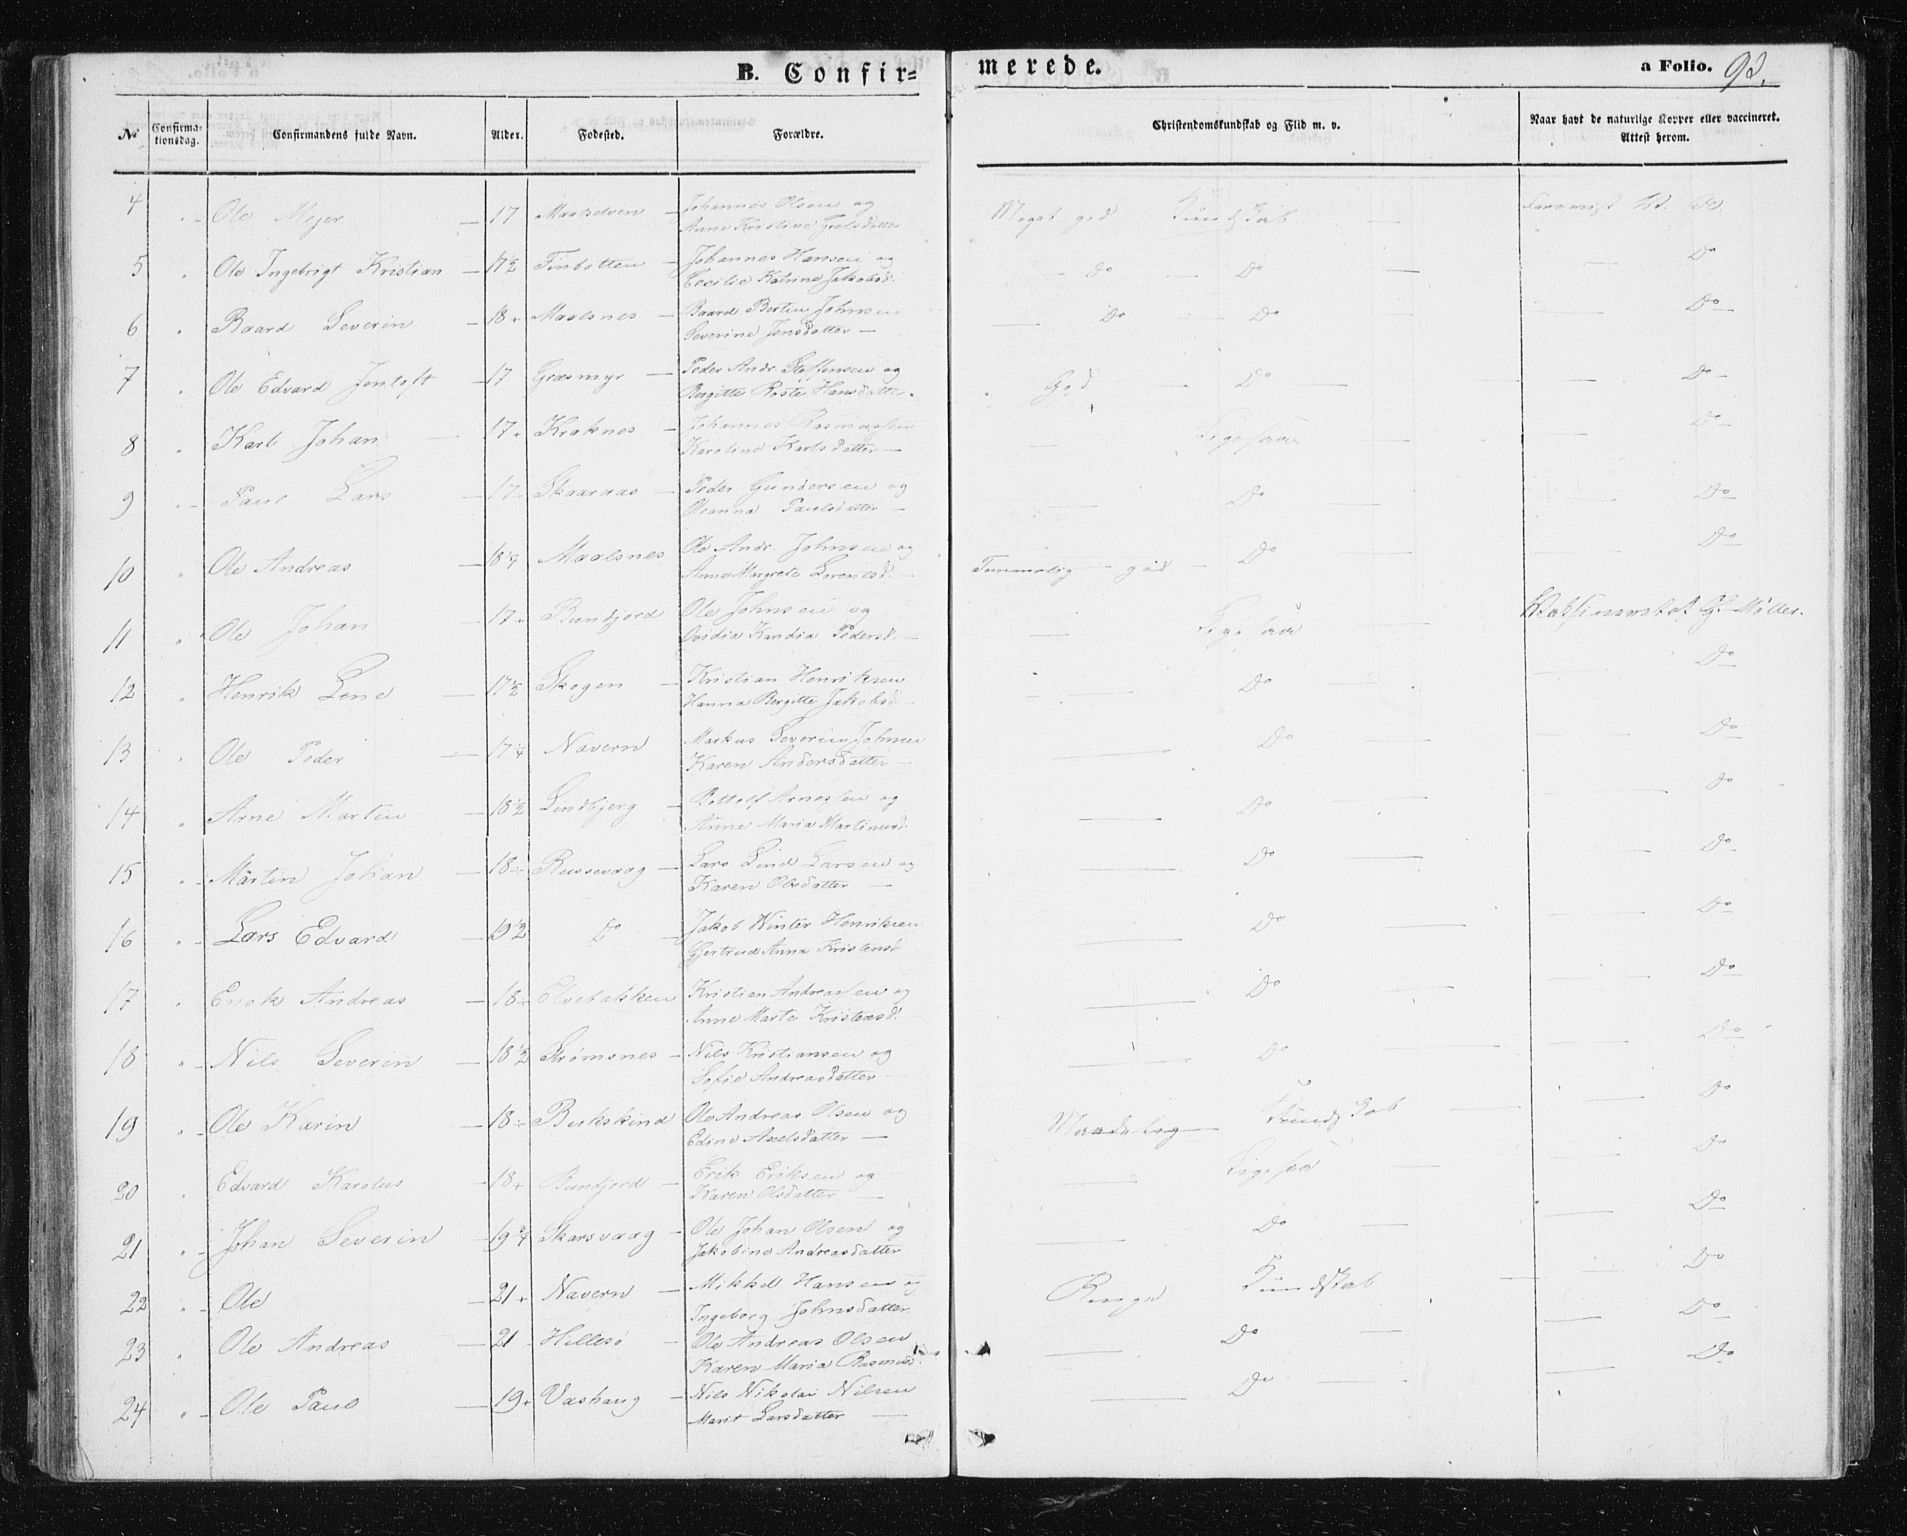 B. Confir= merede. a Folio. 98.
No Confirma-tionsdag. Confirmandens fulde Navn. Alder. Fodested. Forældre. Christendomskundskab og Flid m. v. Naar havt de naturlige Kopper eller vaccineret. Attest herom.
4 " Ole Mejer 17 Maalselven Johannes Olsen og Meget god Kundskab
Anne Kristine
5 " Ole Ingebrigt Kristian 17½ Finbotten Johannes Hansen og Do Do Do
Cecilie Katrine Jakobsd.
6 " Baard Severin 18 Maalsnes Baard Bertin Johnsen Do Do Do
Severine Jensdatter
7 " Ole Edvard Jentoft 17 Græsmyr Peder Andr. Steffensen og God Do Do
Bergitte Hansdatter
8 " Karl Johan 17 Kraknes Johannes Rasmussen Ligesaa Do
Karoline Karlsdatter
9 " Paul Lars 17 Skaaraas Peder Gundersen og Do Do
Oleanna Paulsdatter
10 " Ole Andreas 18¼ Maalsnes Ole Andr. Johnsen og Temmelig god Do Do
Anne Margrete Lorentsd.
11 " Ole Johan 17 Rundfjord Ole Johnsen og Ligesaa Møller.
Ovidia Kandia Pedersd.
12 " Henrik Lene 17½ Skogen Kristian Henriksen Do Do
Hanna Bergitte Jakobsd
13 " Ole Peder 17¼ Navern Markus Severin Johnsen Do Do
Karen Andersdatter
14 " Arne Martin 18½ Lindbjerg Bottolf Arnessen og Do Do
Anne Maria Martinusd.
15 " Martin Johan 18 Russevaag Lars Lind Larsen og Do Do
Karen Olsdatter
16 " Lars Edvard 19½ Do Jakob Winter Henriksen Do Do
Gjertrud Anna Kristensd
17 " Enok Andreas 18 Elvebakken Kristian Andreassen og Do Do
Anne Marte Kristensd.
18 " Nils Severin 18½ Strømsnes Nils Kristiansen og Do Do
Sofie Andreasdatter
19 " Ole Karin 18 Bukskind Ole Andreas Olsen og Maadelig Kundskab Do
Edine Axelsdatter
20 " Edvard Karolus 18 Rundfjord Erik Eriksen og Ligesaa Do
Karen Olsdatter
21 " Johan Severin 19¾ Skarsvaag Ole Johan Olsen og Do Do
Jakobine Andreasdatter
22 " Ole 21 Navern Mikkel Hansen og Ringe Kundskab Do
Ingeborg Johnsdatter
23 " Ole Andreas 21 Hillesø Ole Andreas Olsen Do Do
Karen Maria Rasmusd.
24 " Ole Paul 19 Vashaug Nils Nikolai Nilsen Do Do
Marit Larsdatter